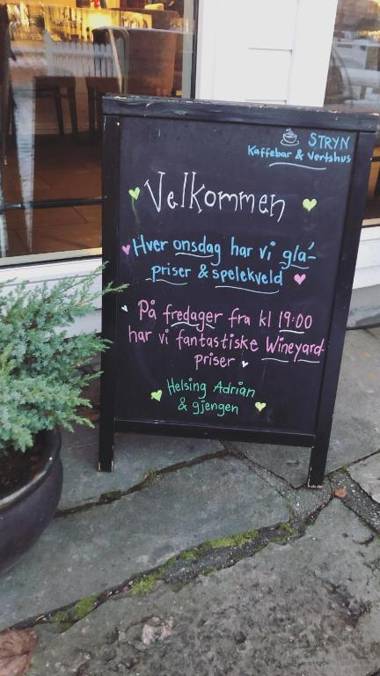 STRYN
Kaffebar & Vertshus
Velkommen
Hver onsdag har vi gla'-
priser & spelekveld
På fredager fra kl 19:00
har vi fantastiske Wineyard-
priser
Helsing Adrian
& gjengen